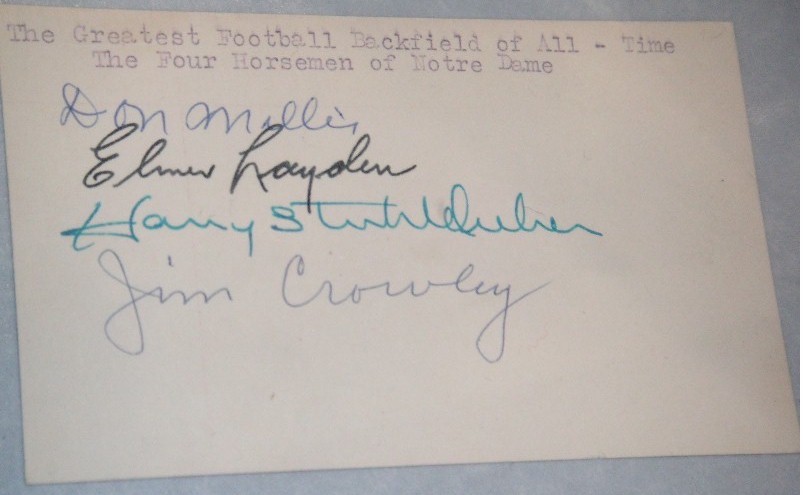 The Greatest Football Backfield of All - Time
The Four Horsemen of Notre Dame
Don Miller
Elmer Layden
Harry Stuhldreher
Jim Crowley